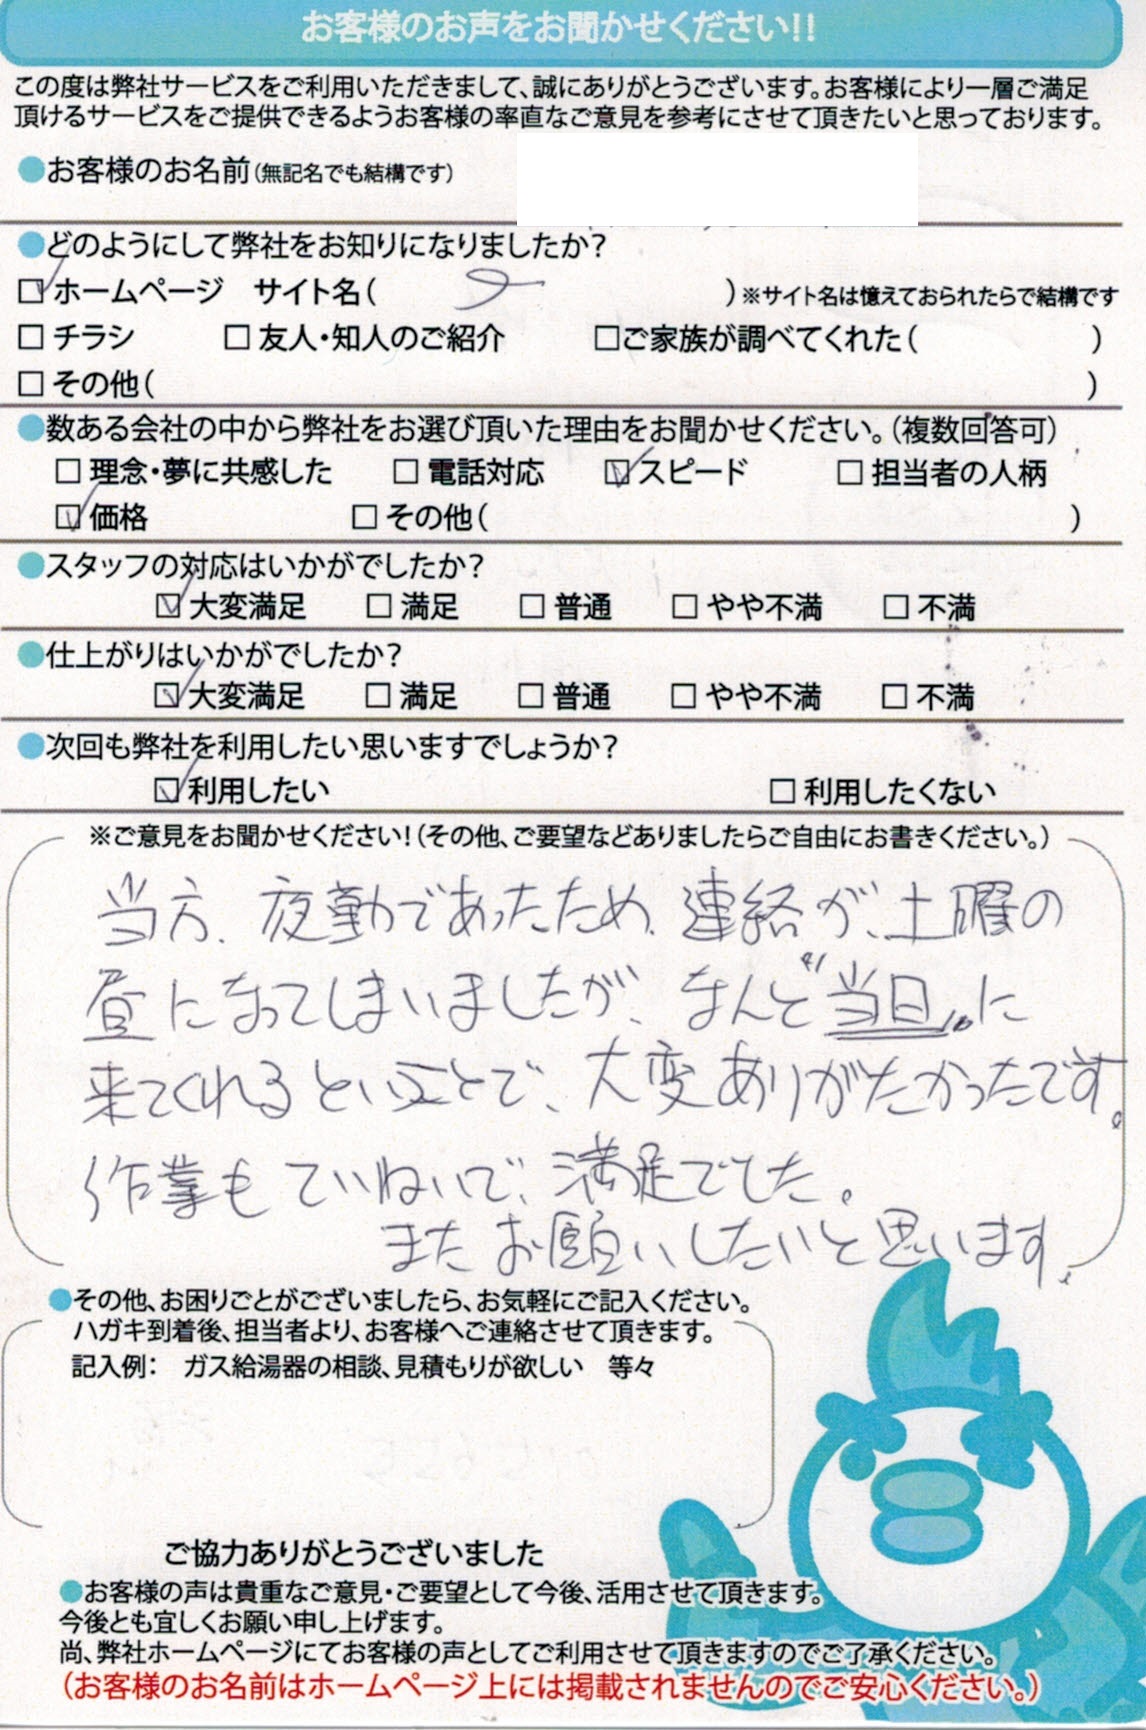 お客様のお声をお聞かせください!!
この度は弊社サービスをご利用いただきまして、誠にありがとうございます。お客様により一層ご満足
頂けるサービスをご提供できるようお客様の率直なご意見を参考にさせて頂きたいと思っております。
●お客様のお名前(無記名でも結構です)
●どのようにして弊社をお知りになりましたか?
☑ホームページ サイト名( )※サイト名は憶えておられたらで結構です
□チラシ □友人・知人のご紹介 □ご家族が調べてくれた( )
□その他( )
●数ある会社の中から弊社をお選び頂いた理由をお聞かせください。(複数回答可)
□理念・夢に共感した □電話対応 ☑スピード □担当者の人柄
☑価格 □その他( )
●スタッフの対応はいかがでしたか?
☑大変満足 □満足 □普通 □やや不満 □不満
●仕上がりはいかがでしたか?
☑大変満足 □満足 □普通 □やや不満 □不満
●次回も弊社を利用したい思いますでしょうか?
☑利用したい □利用したくない
※ご意見をお聞かせください!(その他、ご要望などありましたらご自由にお書きください。)
当方、夜勤であったため、連絡が、土曜の
昼になってしまいましたが、なんと〝当日〟に
来てくれるということで、大変ありがたかったです。
作業もていねいで、満足でした。
またお願いしたいと思います。
●その他、お困りごとがございましたら、お気軽にご記入ください。
ハガキ到着後、担当者より、お客様へご連絡させて頂きます。
記入例: ガス給湯器の相談、見積もりが欲しい 等々
ご協力ありがとうございました
●お客様の声は貴重なご意見・ご要望として今後、活用させて頂きます。
今後とも宜しくお願い申し上げます。
尚、弊社ホームページにてお客様の声としてご利用させて頂きますのでご了承ください。
(お客様のお名前はホームページ上には掲載されませんのでご安心ください。)